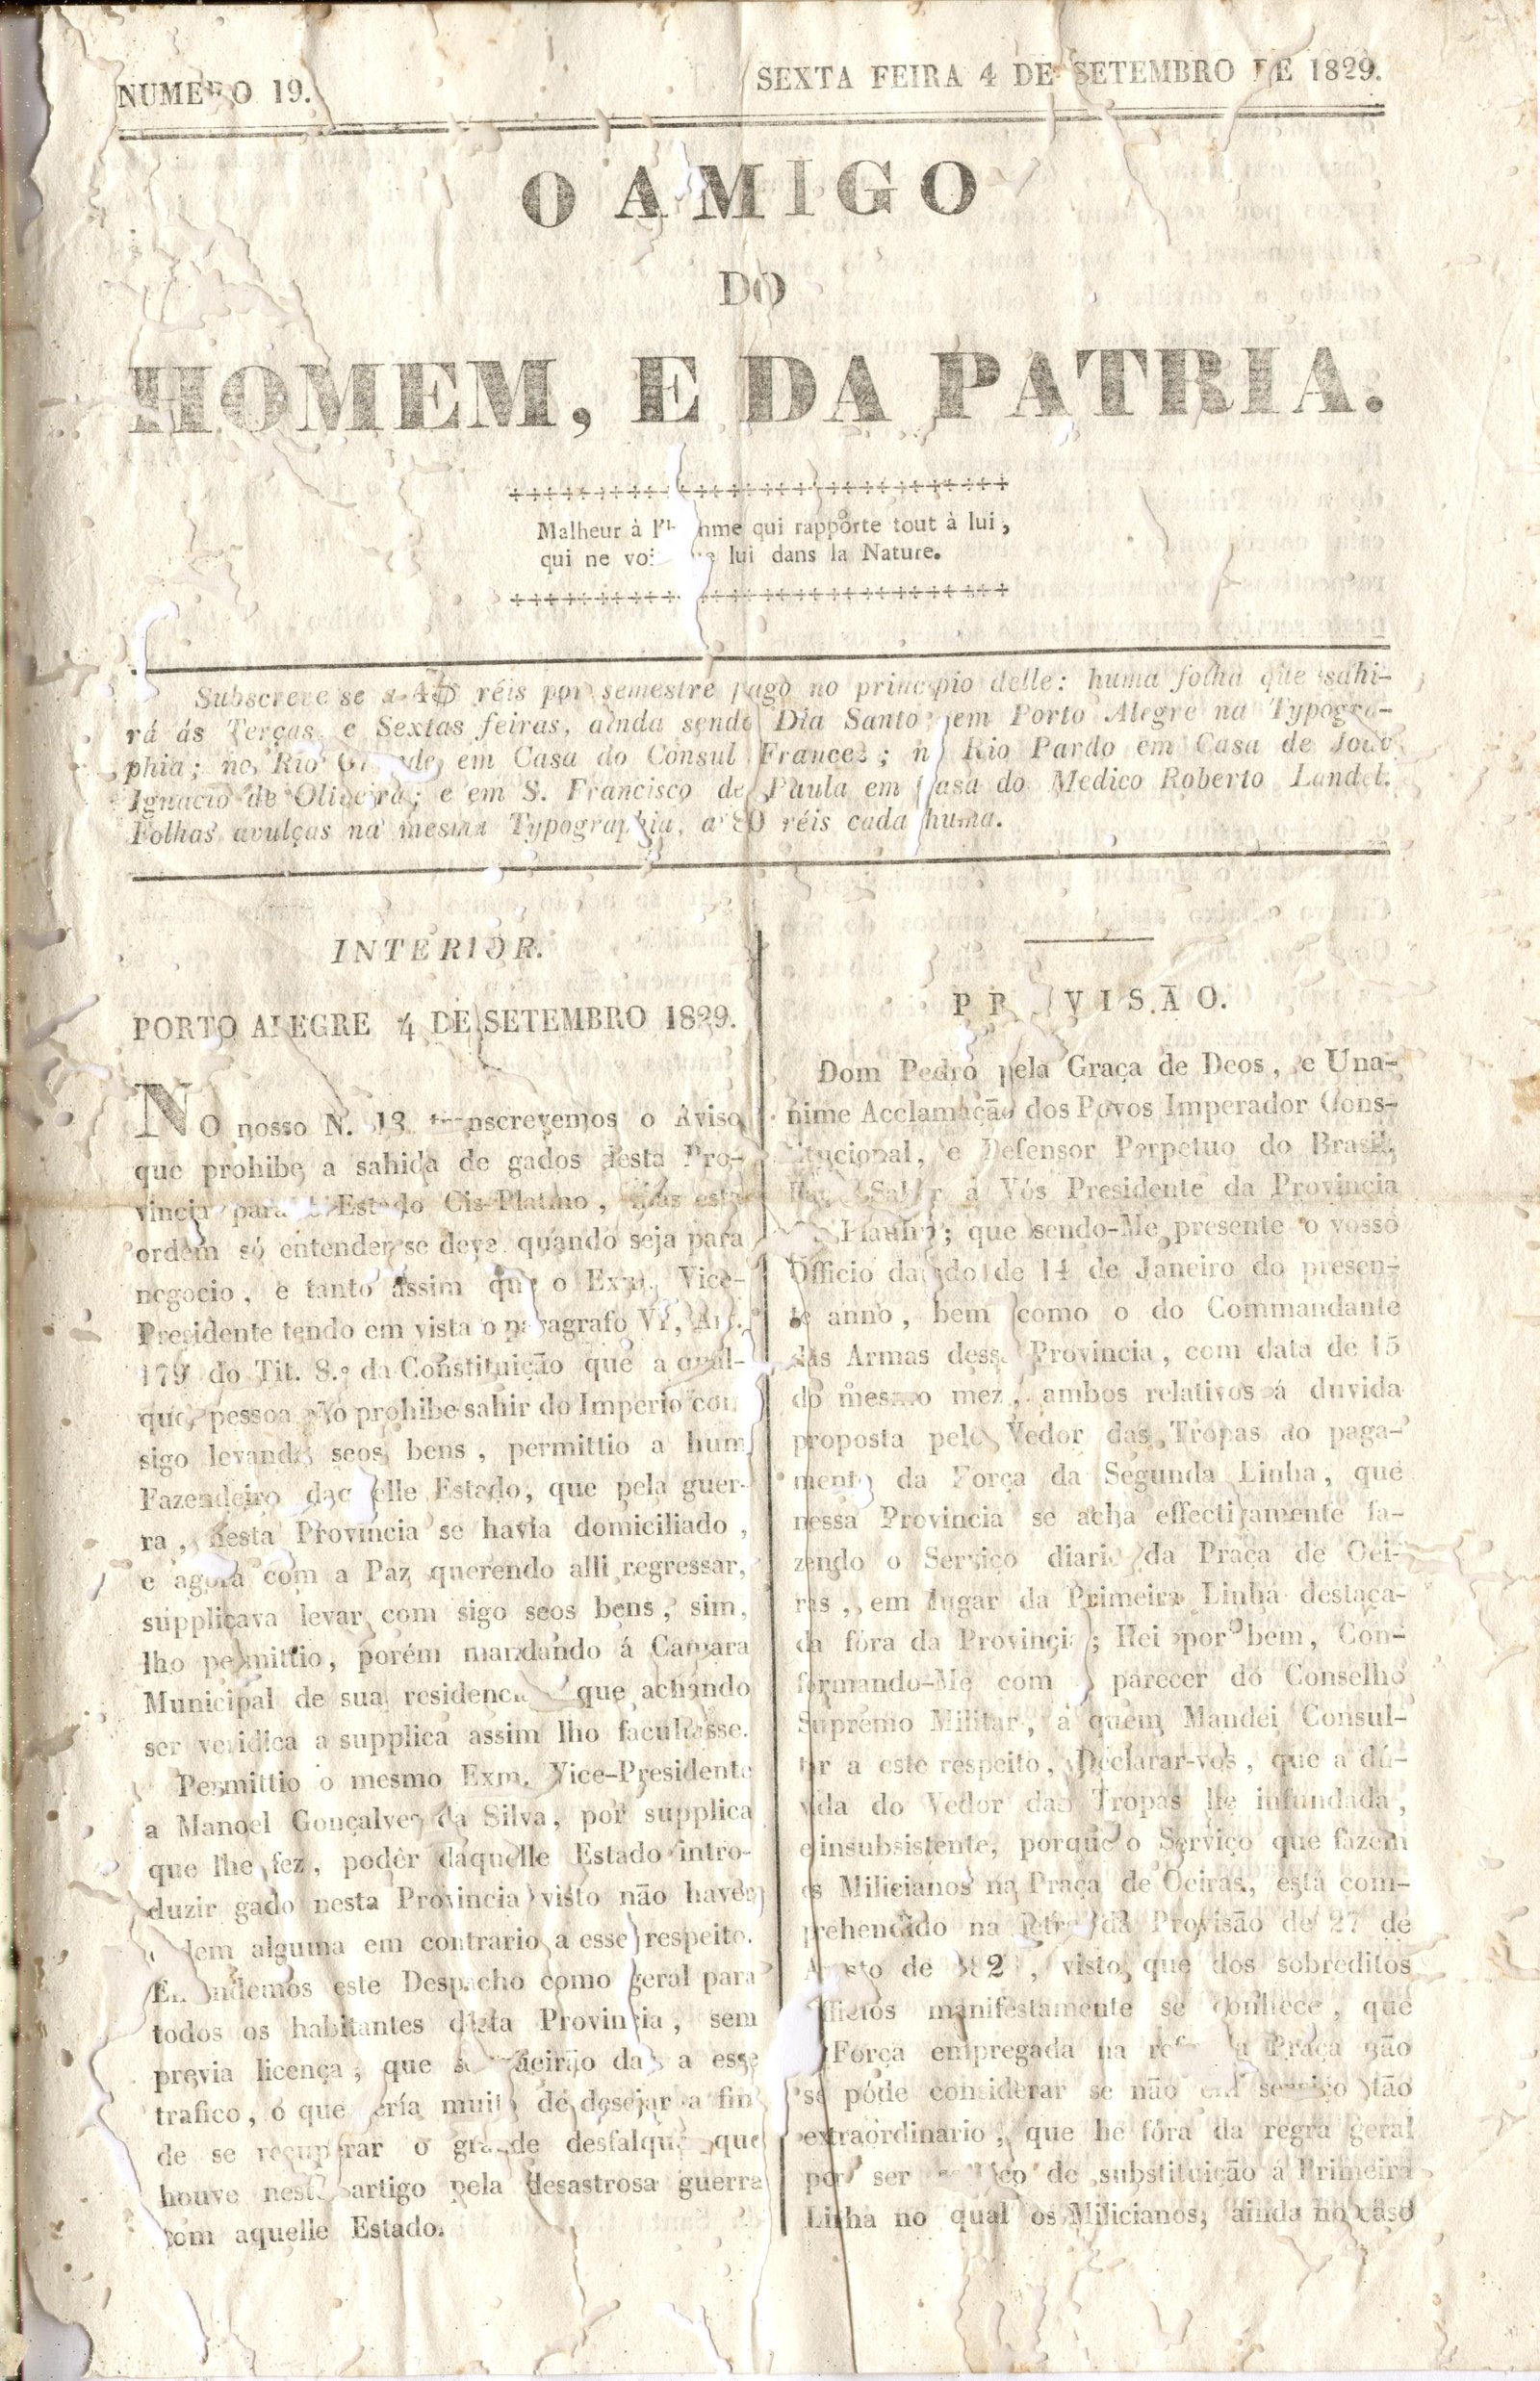 NUMERO 19.
SEXTA FEIRA 4 DE SETEMBRO DE 1829.
O AMIGO
DO
HOMEM, E DA PATRIA.
Malheur à l'homme qui rapporte tout à lui,
qui ne voit que lui dans la Nature.
Subscreve se a 4$ réis por semestre pago no principio delle: huma folha que sahi-
rá ás Terças, e Sextas feiras, ainda sendo Dia Santo; em Porto Alegre na Typogra-
phia; no Rio Grande, em Casa do Consul Francez; no Rio Pardo em Casa de João
Ignacio de Oliveira; e em S. Francisco de Paula em Casa do Medico Roberto Landel.
Folhas avulças na mesma Typographia, a 80 réis cada huma.
INTERIOR.
PORTO ALEGRE 4 DE SETEMBRO 1829.
NO nosso N. 13 transcrevemos o Aviso
que prohibe a sahida de gados desta Pro-
vincia para o Estado Cis-Platino, mas esta
ordem só entender se deve quando seja para
negocio, e tanto assim que o Exm. Vice-
Presidente tendo em vista o paragrafo VI, Art.
179 do Tit. 8.º da Constituição que a qual-
quer pessoa não prohibe sahir do Imperio com
sigo levando seos bens, permittio a hum
Fazendeiro daquelle Estado, que pela guer-
ra, nesta Provincia se havia domiciliado,
e agora com a Paz querendo alli regressar,
supplicava levar com sigo seos bens, sim,
lho permittio, porém mandando á Camara
Municipal de sua residencia que achando
ser veridica a supplica assim lho facultasse.
Permittio o mesmo Exm. Vice-Presidente
a Manoel Gonçalves da Silva, por supplica
que lhe fez, podér daquelle Estado intro-
duzir gado nesta Provincia visto não haver
ordem alguma em contrario a esse respeito.
Entendemos este Despacho como geral para
todos os habitantes desta Provincia, sem
previa licença, que se queirão dar a esse
trafico, o que sería muito de desejar a fim
de se recuperar o grande desfalque que
houve neste artigo pela desastrosa guerra
com aquelle Estado.
PROVISÃO.
Dom Pedro pela Graça de Deos, e Una-
nime Acclamação dos Povos Imperador Cons-
titucional, e Defensor Perpetuo do Brasil,
Faço Saber á Vós Presidente da Provincia
do Piauhy; que sendo-Me presente o vosso
Officio datado de 14 de Janeiro do presen-
te anno, bem como o do Commandante
das Armas dessa Provincia, com data de 15
do mesmo mez, ambos relativos á duvida
proposta pelo Vedor das Tropas ao paga-
mento da Força da Segunda Linha, que
nessa Provincia se acha effectivamente fa-
zendo o Serviço diario da Praça de Oei-
ras, em lugar da Primeira Linha destaca-
da fóra da Provincia; Hei por bem, Con-
formando-Me com o parecer do Conselho
Supremo Militar, á quem Mandei Consul-
tar a este respeito, Declarar-vos, que a dú-
vida do Vedor das Tropas he infundada,
e insubsistente, porque o Serviço que fazem
os Milicianos na Praça de Oeiras, está com-
prehendido na letra da Provisão de 27 de
Agosto de 182 , visto que dos sobreditos
Officios manifestamente se conhece, que
a Força empregada na referida Praça não
se póde considerar se não em serviço tão
extraordinario, que he fóra da regra geral
por ser de substituição á Primeira
Linha no qual os Milicianos, ainda no caso